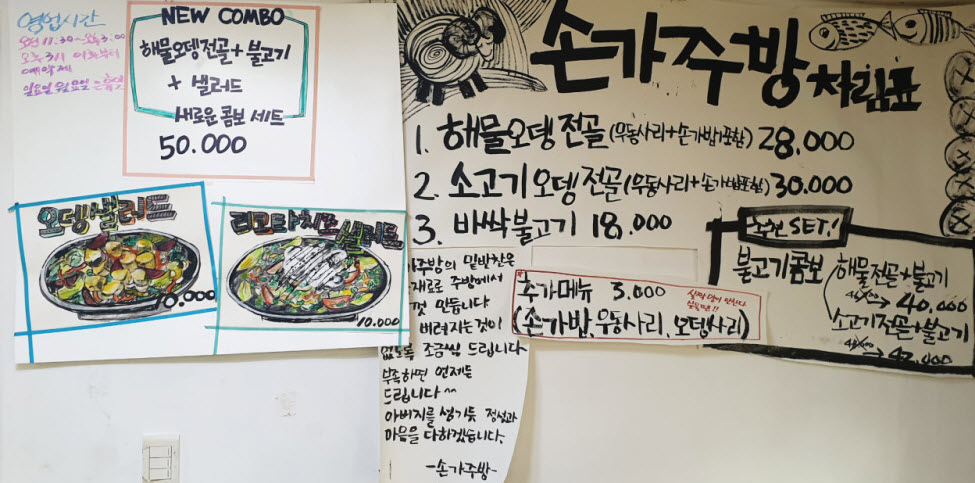 영업시간
오전 11.30~오후 3.00
오후 3시 이후부터
예약제
일요일 월요일은 휴무
NEW COMBO
해물오뎅전골+불고기
+ 샐러드
새로운 콤보 세트
50.000
오뎅샐러드
10.000
리코타치즈 샐러드
10.000
손가주방
차림표
1. 해물오뎅전골(우동사리+손가밥포함) 28.000
2. 소고기오뎅전골(우동사리+손가밥포함) 30.000
3. 바싹불고기 18.000
추천 SET!
불고기콤보
해물전골+불고기
46.000 → 40.000
소고기전골+불고기
48.000 → 42.000
추가메뉴 3.000
(손가밥, 우동사리, 오뎅사리)
주방의 밑반찬은
재료로 주방에서
만듭니다
버려지는것이
없도록 조금씩 드립니다
부족하면 언제든
드립니다^^
아버지를 섬기듯 정성과
마음을 다하겠습니다.
-손가주방-